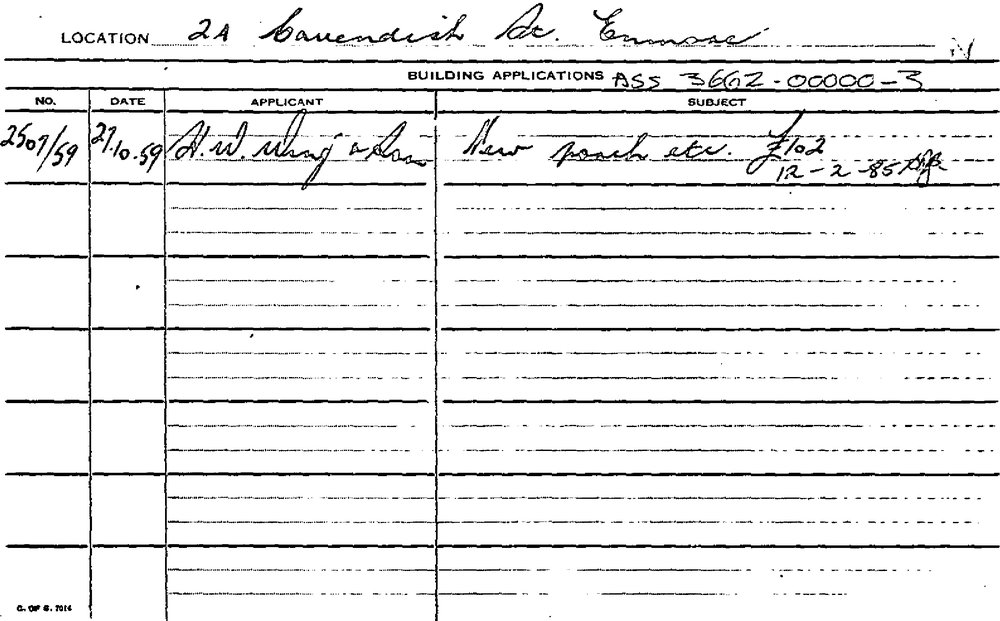 LOCATION 24 Cavendish St. Enmore N
BUILDING APPLICATIONS ASS 3662-00000-3
NO. DATE APPLICANT SUBJECT
2507/59 27.10.59 H. W. & Son New porch etc. £102
12-2-85
C. OF S. 7014